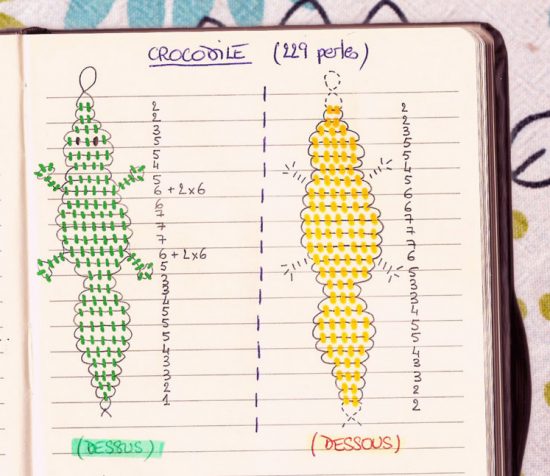 CROCODILE (229 perles)
2
2
3
5
5
4
5
6 + 2x6
6
7
7
7
6 + 2x6
5
3
3
4
5
5
5
4
3
3
2
1
(DESSUS)
2
2
3
5
5
4
5
6
6
7
7
7
6
5
3
3
4
5
5
4
3
3
2
2
(DESSOUS)